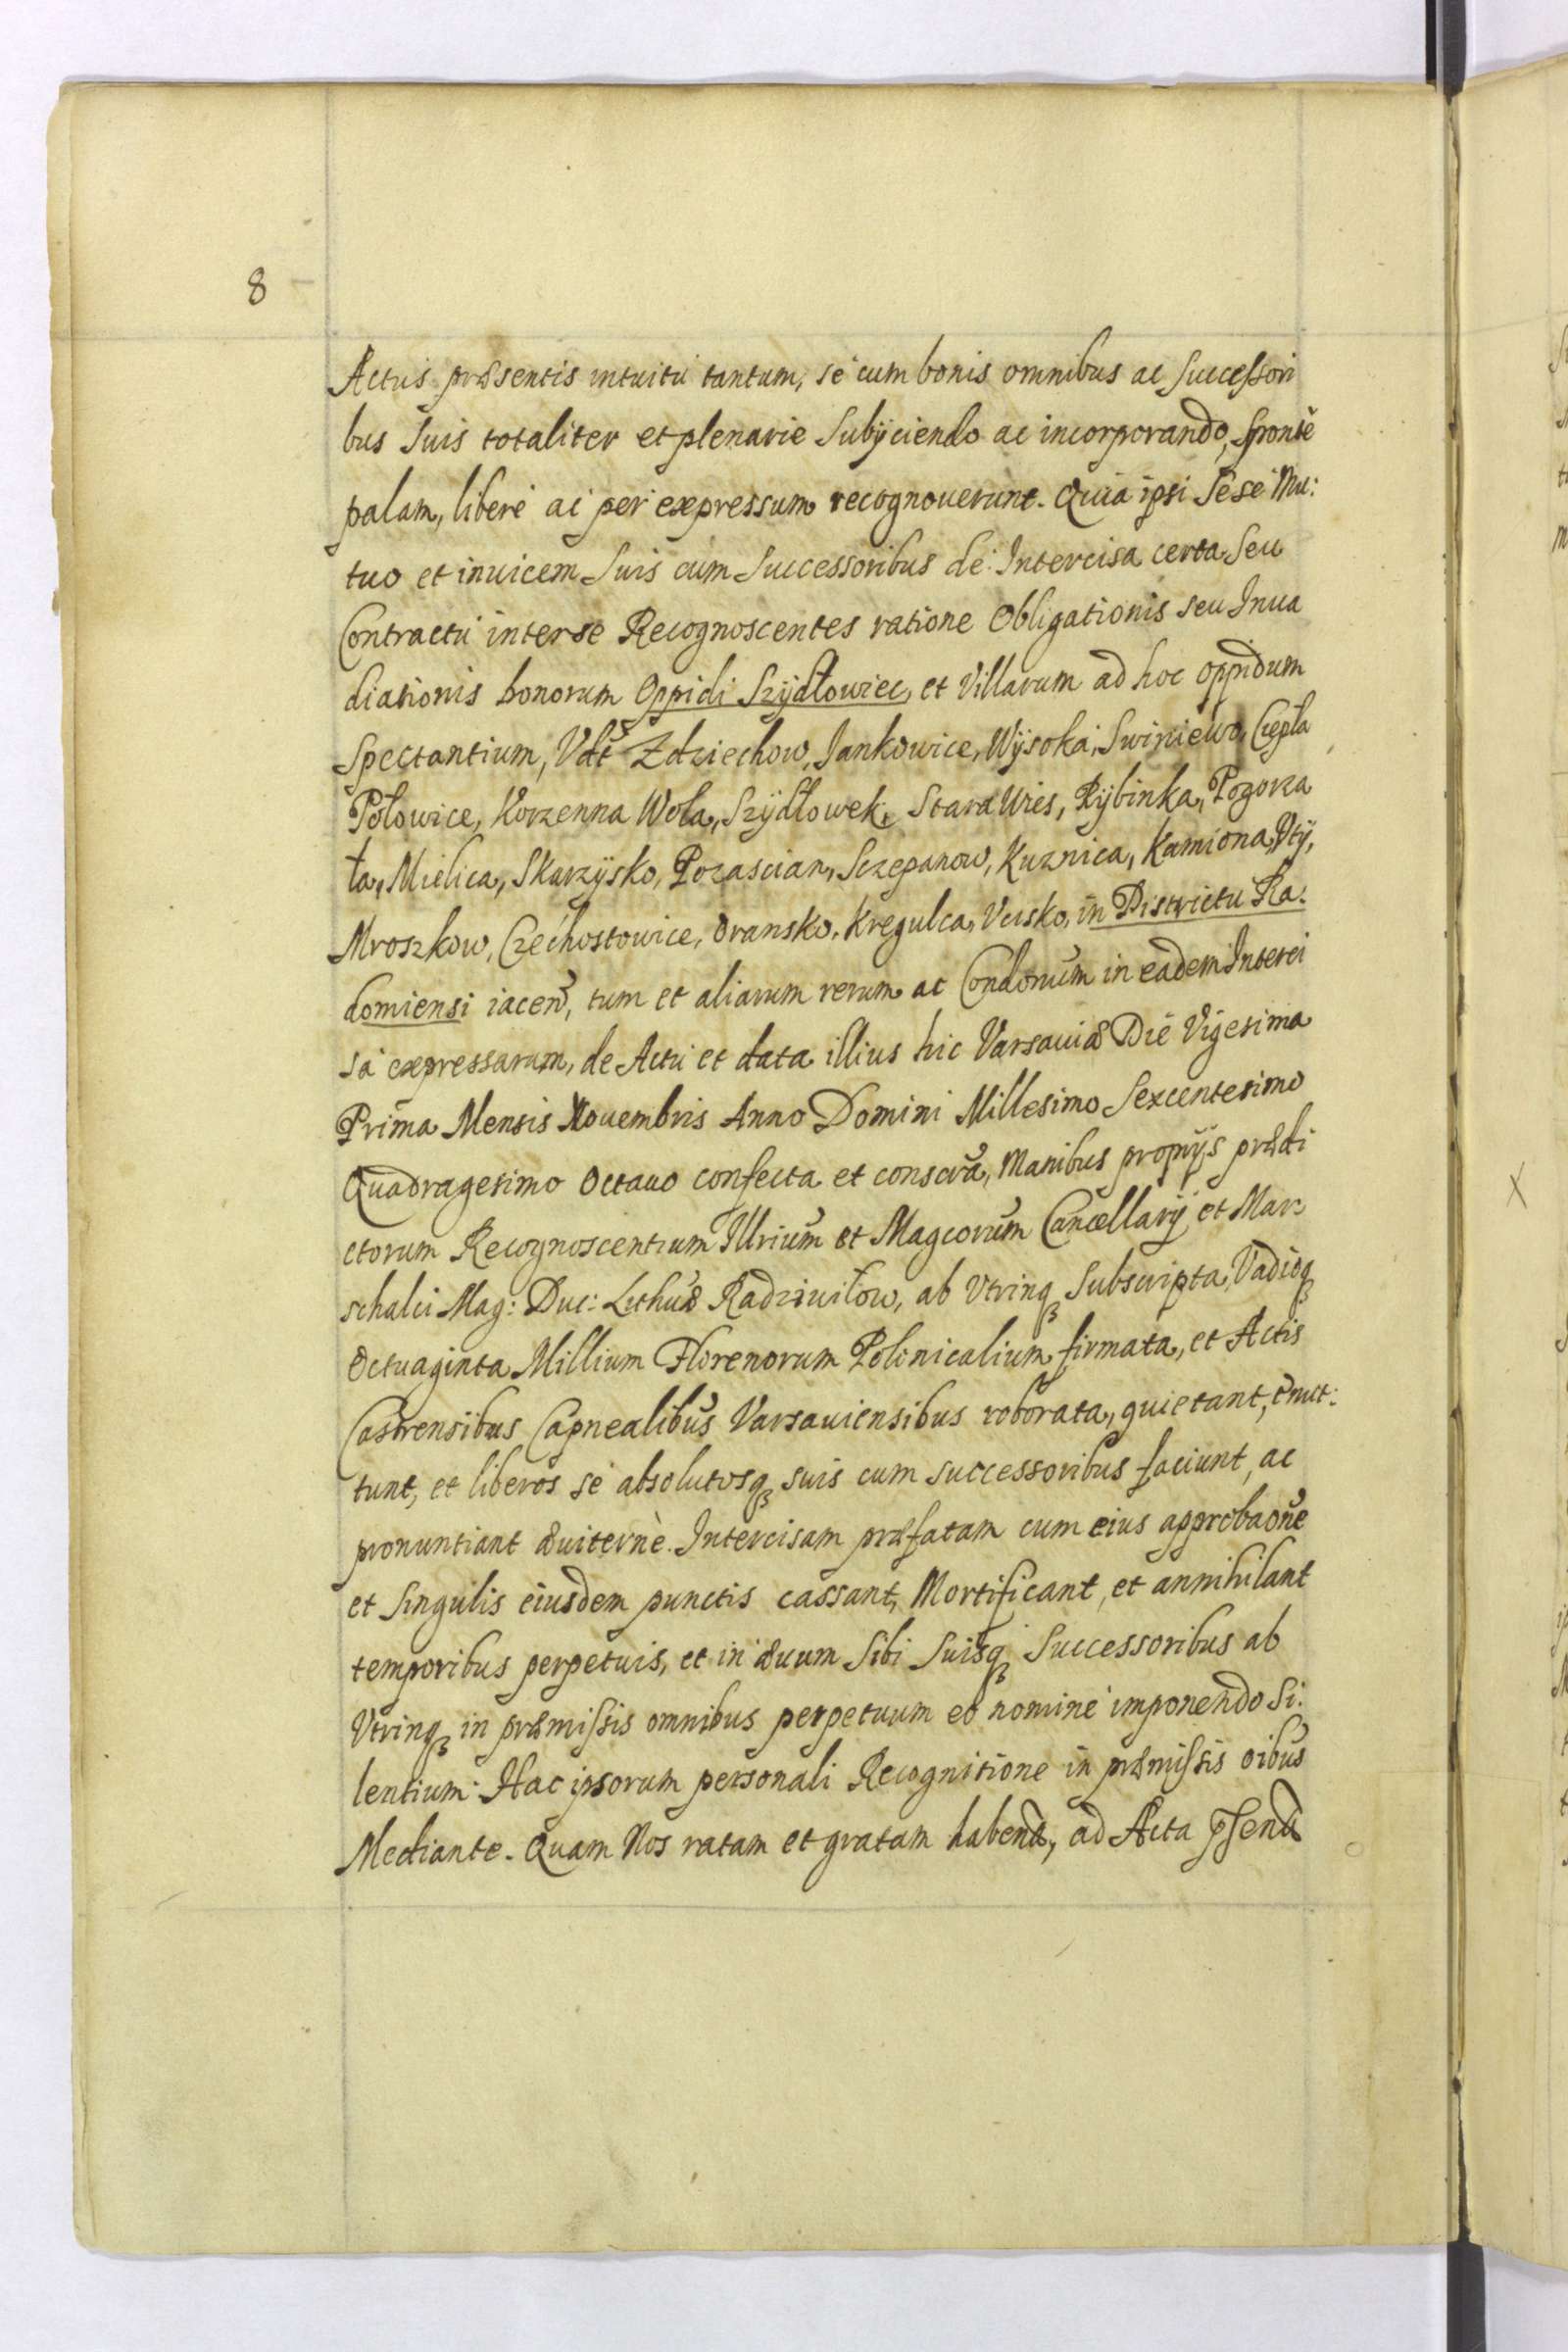 8
Actus præsentis intuitu tantum, se cum bonis omnibus ac successori
bus suis totaliter et plenarie subijciendo ac incorporando, sponte
palam, libere ac per expressum recognouerunt. Quia ipsi sese Mu:
tuo et inuicem suis cum successoribus de Intercisa certa seu
Contractu interse Recognoscentes ratione Obligationis seu Inua
diationis bonorum Oppidi Szÿdłowiec, et Villarum ad hoc oppidum
spectantium, Vdt Zdziechow, Jankowice, Wÿsoka, Swiniewo, Ciepła
Połowice, Korzenna Wola, Szÿdłowek, Stara Wies, Rÿbinka, Pogorza
ła, Mielica, Skarzÿsko, Pozascian, Sczepanow, Kuznica, Kamiona, Vtÿ,
Mroszkow, Czechostowice, Oransko, Kregulca, Vusko, in Districtu Ra:
domiensi iacen, tum et aliarum rerum ac Condonum in eadem Interci
sa expressarum, de Actu et data illius hic Varsauiæ Die Vigesima
Prima Mensis Nouembris Anno Domini Millesimo Sexcentesimo
Quadragesimo Octauo confecta et conscra, Manibus proprijs prædi
ctorum Recognoscentium Illrium et Magcorum Cancellarij et Mar:
schalci Mag: Duc: Lithuæ Radziwiłow, ab Vtrinq subscripta, Vadioq
Octuaginta Millium Florenorum Polonicalium firmata, et Actis
Castrensibus Capnealibus Varsauiensibus roborata, quietant, emit:
tunt, et liberos se absolutosq suis cum successoribus faciunt, ac
pronuntiant æuiternè. Intercisam præfatam cum eius approbaone
et singulis eiusdem punctis cassant, Mortificant, et annihilant
temporibus perpetuis, et in æuum sibi suisq successoribus ab
Vtrinq in præmissis omnibus perpetuum eo nomine imponendo si:
lentium. Hac ipsorum personali Recognitione in præmissis oibus
Mediante. Quam Nos ratam et gratam habend, ad Acta psend